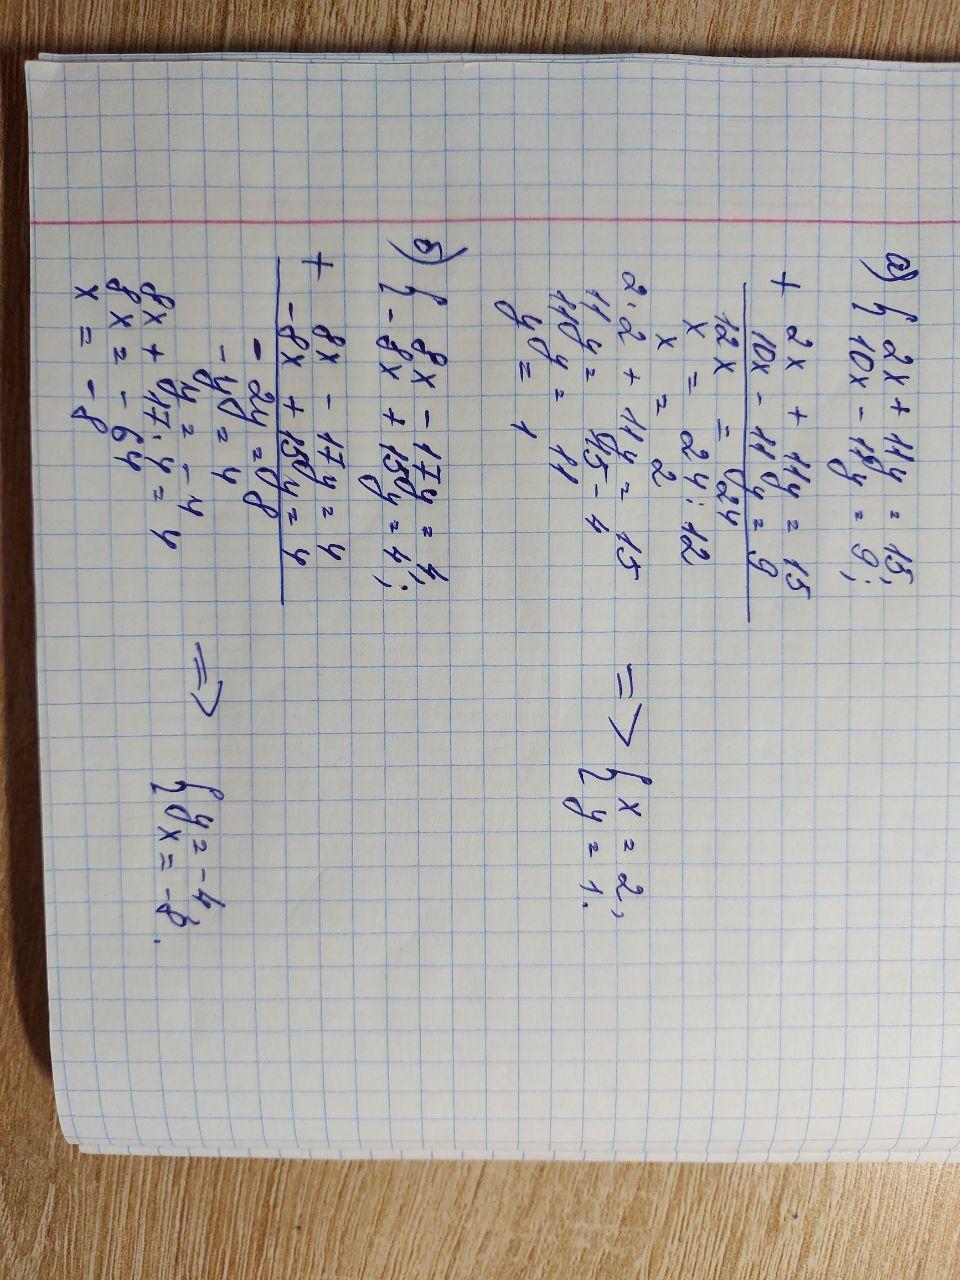 а) { 2x + 11y = 15,
10x - 11y = 9;
+ 2x + 11y = 15
10x - 11y = 9
12x = 24
x = 24 : 12
x = 2
2·2 + 11y = 15
11y = 15 - 4
11y = 11
y = 1
=> { x = 2,
y = 1.
б) { 8x - 17y = 4,
-8x + 15y = 4;
+ 8x - 17y = 4
-8x + 15y = 4
- 2y = 8
- y = 4
y = - 4
8x + 17·4 = 4
8x = - 64
x = - 8
=> { y = -4,
x = -8.